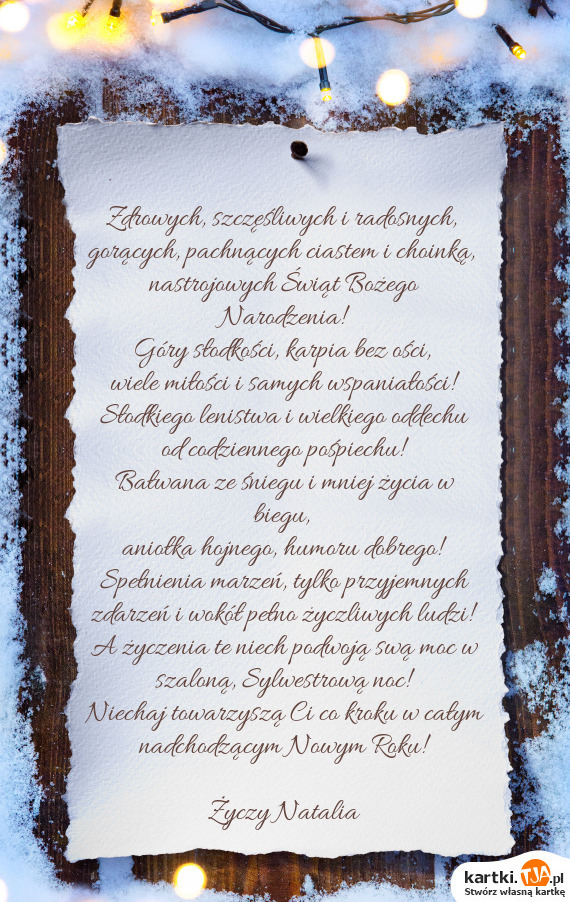 Zdrowych, szczęśliwych i radosnych,
gorących, pachnących ciastem i choinką,
nastrojowych Świąt Bożego
Narodzenia!
Góry słodkości, karpia bez ości,
wiele miłości i samych wspaniałości!
Słodkiego lenistwa i wielkiego oddechu
od codziennego pośpiechu!
Bałwana ze śniegu i mniej życia w
biegu,
aniołka hojnego, humoru dobrego!
Spełnienia marzeń, tylko przyjemnych
zdarzeń i wokół pełno życzliwych ludzi!
A życzenia te niech podwoją swą moc w
szaloną, Sylwestrową noc!
Niechaj towarzyszą Ci co kroku w całym
nadchodzącym Nowym Roku!
Życzy Natalia
kartki.TJA.pl
Stwórz własną kartkę